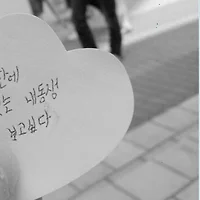 에
는 내동생
보고싶다